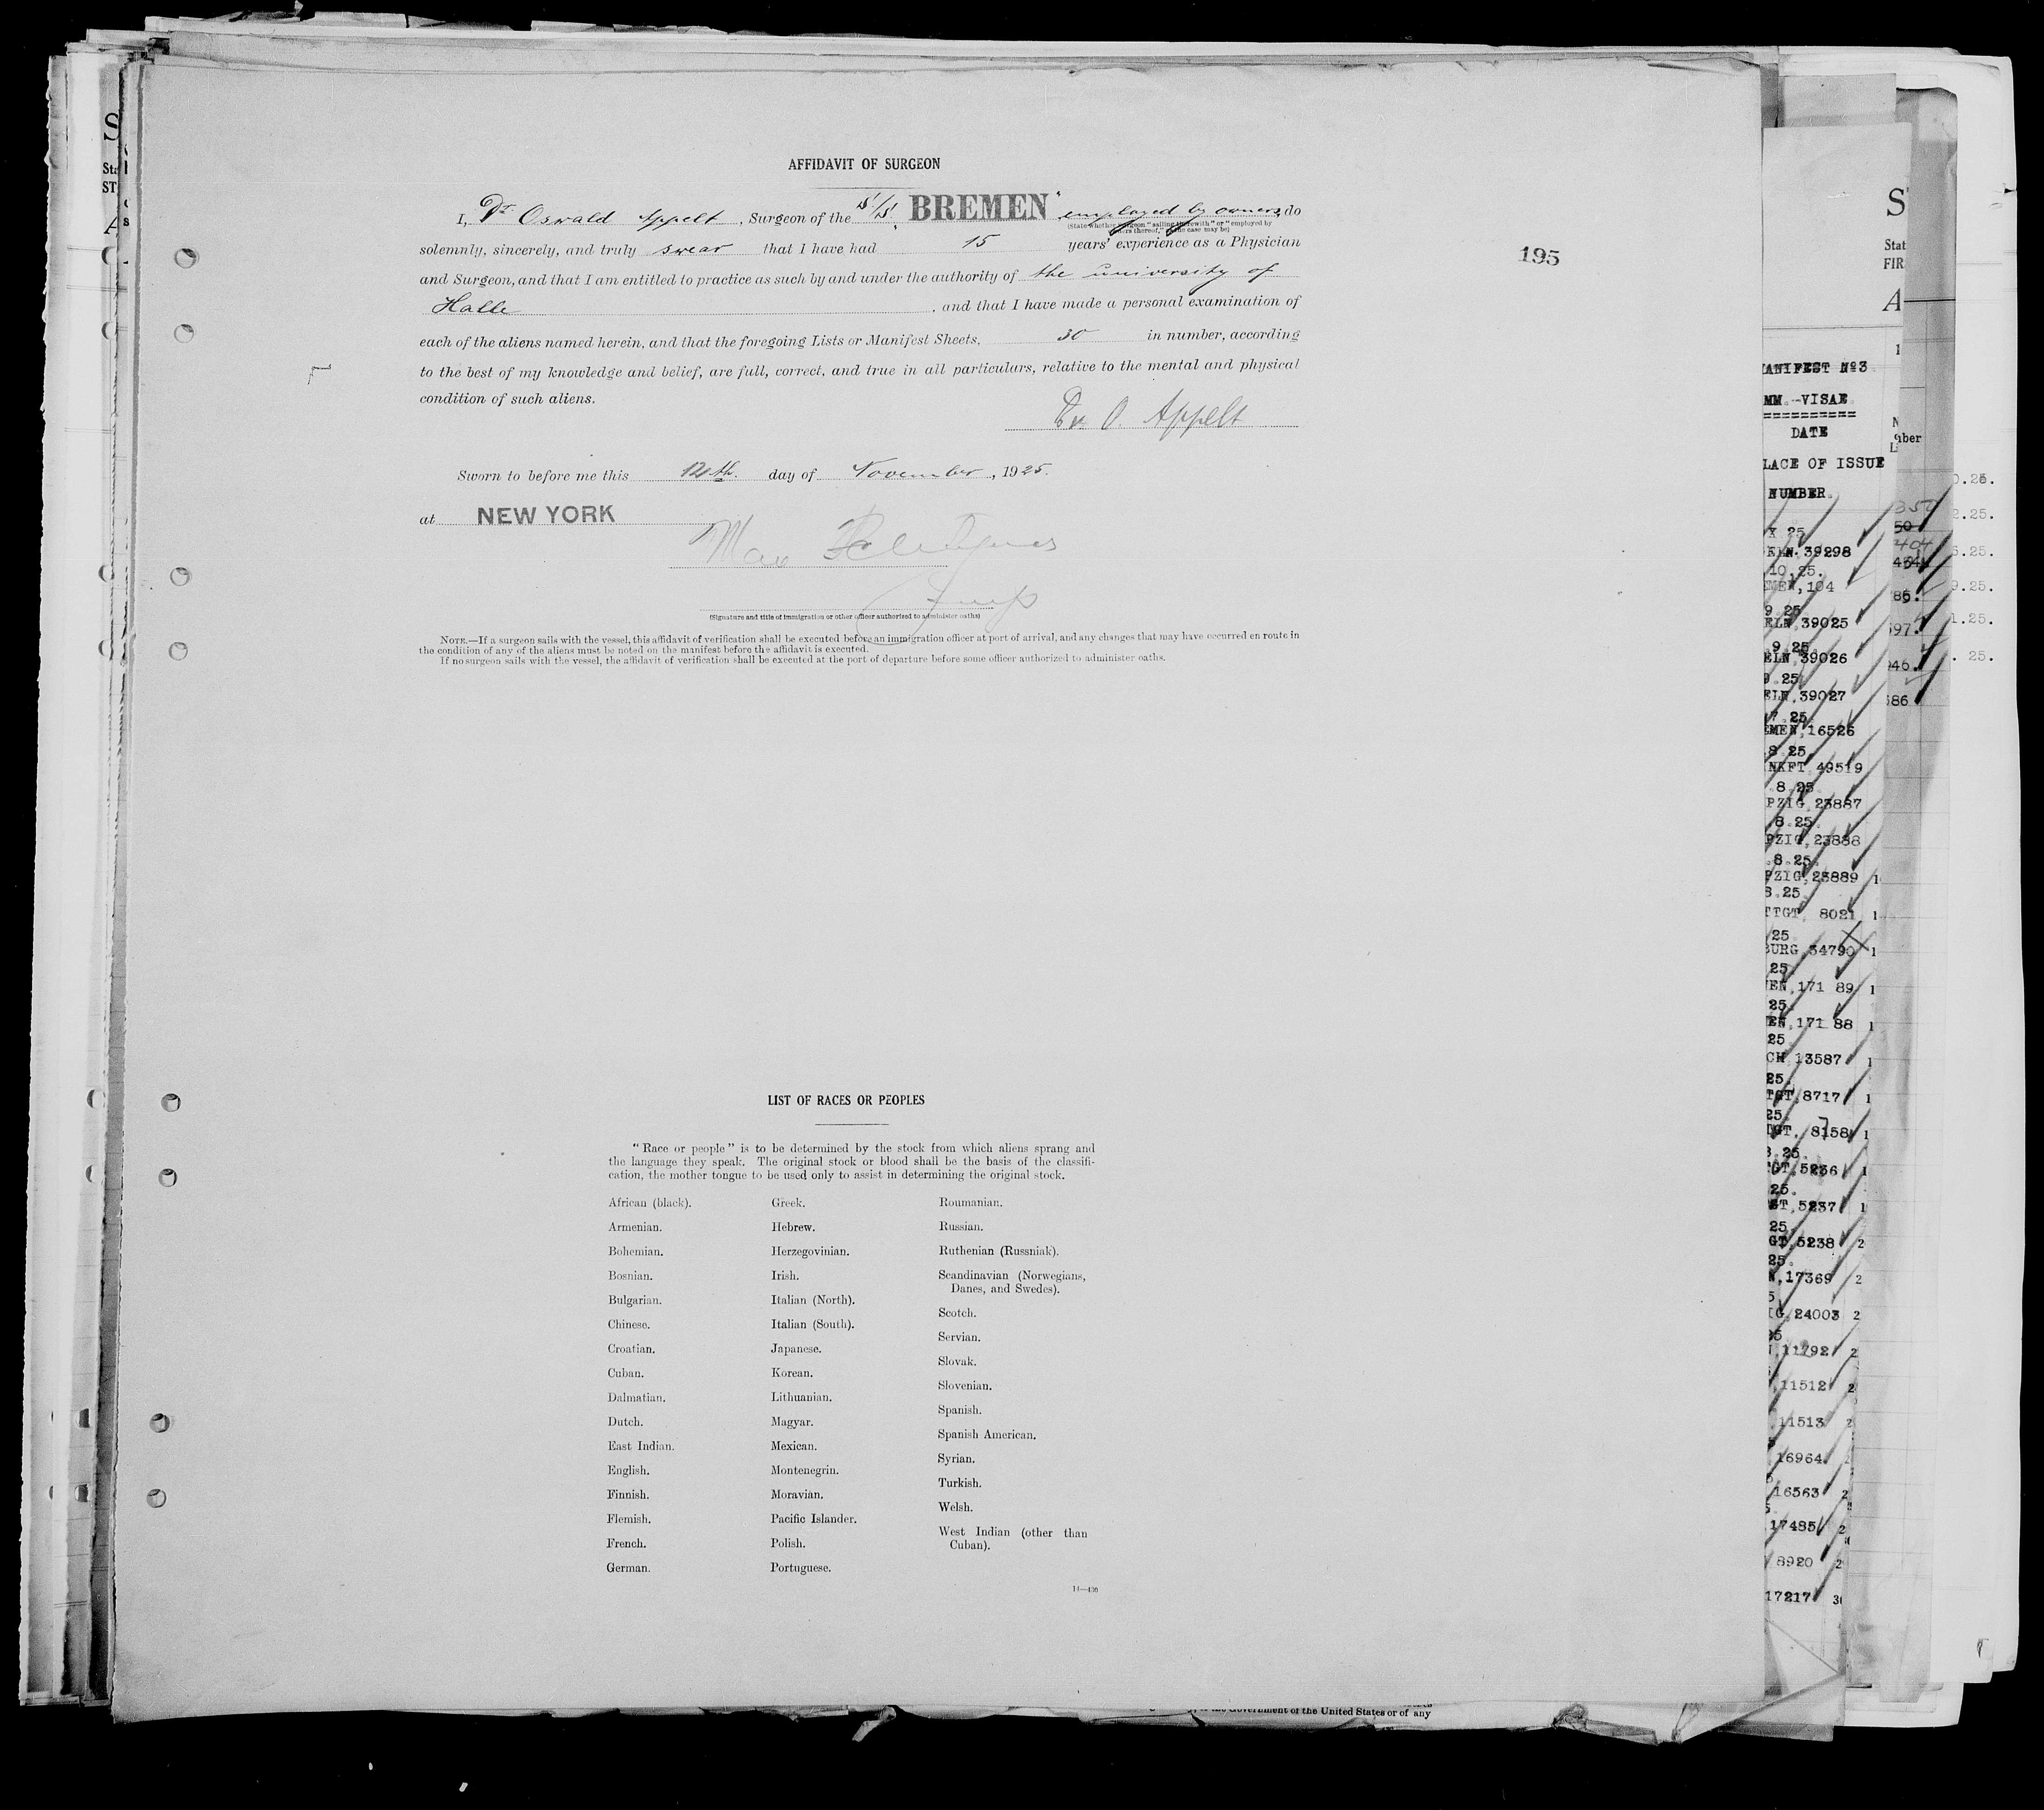 AFFIDAVIT OF SURGEON
I, Dr Oswald Appelt, Surgeon of the S/S. "BREMEN" employed by owners, do
(State whether surgeon "sailing therewith" or "employed by
owners thereof," as the case may be)
solemnly, sincerely, and truly swear that I have had 15 years' experience as a Physician
195
and Surgeon, and that I am entitled to practice as such by and under the authority of the university of
Halle, and that I have made a personal examination of
each of the aliens named herein, and that the foregoing Lists or Manifest Sheets, 30 in number, according
to the best of my knowledge and belief, are full, correct, and true in all particulars, relative to the mental and physical
condition of such aliens.
Dr. O. Appelt
Sworn to before me this 12th. day of November, 1925.
at NEW YORK
Max
Insp
(Signature and title of immigration or other officer authorized to administer oaths)
NOTE.—If a surgeon sails with the vessel, this affidavit of verification shall be executed before an immigration officer at port of arrival, and any changes that may have occurred en route in
the condition of any of the aliens must be noted on the manifest before the affidavit is executed.
If no surgeon sails with the vessel, the affidavit of verification shall be executed at the port of departure before some officer authorized to administer oaths.
LIST OF RACES OR PEOPLES
"Race or people" is to be determined by the stock from which aliens sprang and
the language they speak. The original stock or blood shall be the basis of the classifi-
cation, the mother tongue to be used only to assist in determining the original stock.
African (black).
Armenian.
Bohemian.
Bosnian.
Bulgarian.
Chinese.
Croatian.
Cuban.
Dalmatian.
Dutch.
East Indian.
English.
Finnish.
Flemish.
French.
German.
Greek.
Hebrew.
Herzegovinian.
Irish.
Italian (North).
Italian (South).
Japanese.
Korean.
Lithuanian.
Magyar.
Mexican.
Montenegrin.
Moravian.
Pacific Islander.
Polish.
Portuguese.
Roumanian.
Russian.
Ruthenian (Russniak).
Scandinavian (Norwegians,
Danes, and Swedes).
Scotch.
Servian.
Slovak.
Slovenian.
Spanish.
Spanish American.
Syrian.
Turkish.
Welsh.
West Indian (other than
Cuban).
14—430
ANIFEST Nº3
MM.-VISAE
==========
DATE
LACE OF ISSUE
NUMBER.
X 25
ELN 39298
10.25.
EMEN, 104
9.25
ELN, 39025
9.25
ELN, 39026
9.25
ELN, 39027
7.25
EMEN, 16526
8.25
NKFT 49519
.8.25
PZIG, 23887
.8.25
PZIG, 23888
.8.25
PZIG, 23889
8.25
TTGT, 8021
25
BURG, 34790
25
EN, 171 89
25
EN, 171 88
25
CH 13587
25
TGT, 8717
25
TGT, 8158
8.25
TGT, 5236
25.
GT, 5237
25
GT, 5238
25
N, 17369
IG, 24003
11792
11512
11513
16964
16563
17485
8920
17217
Government of the United States or of any